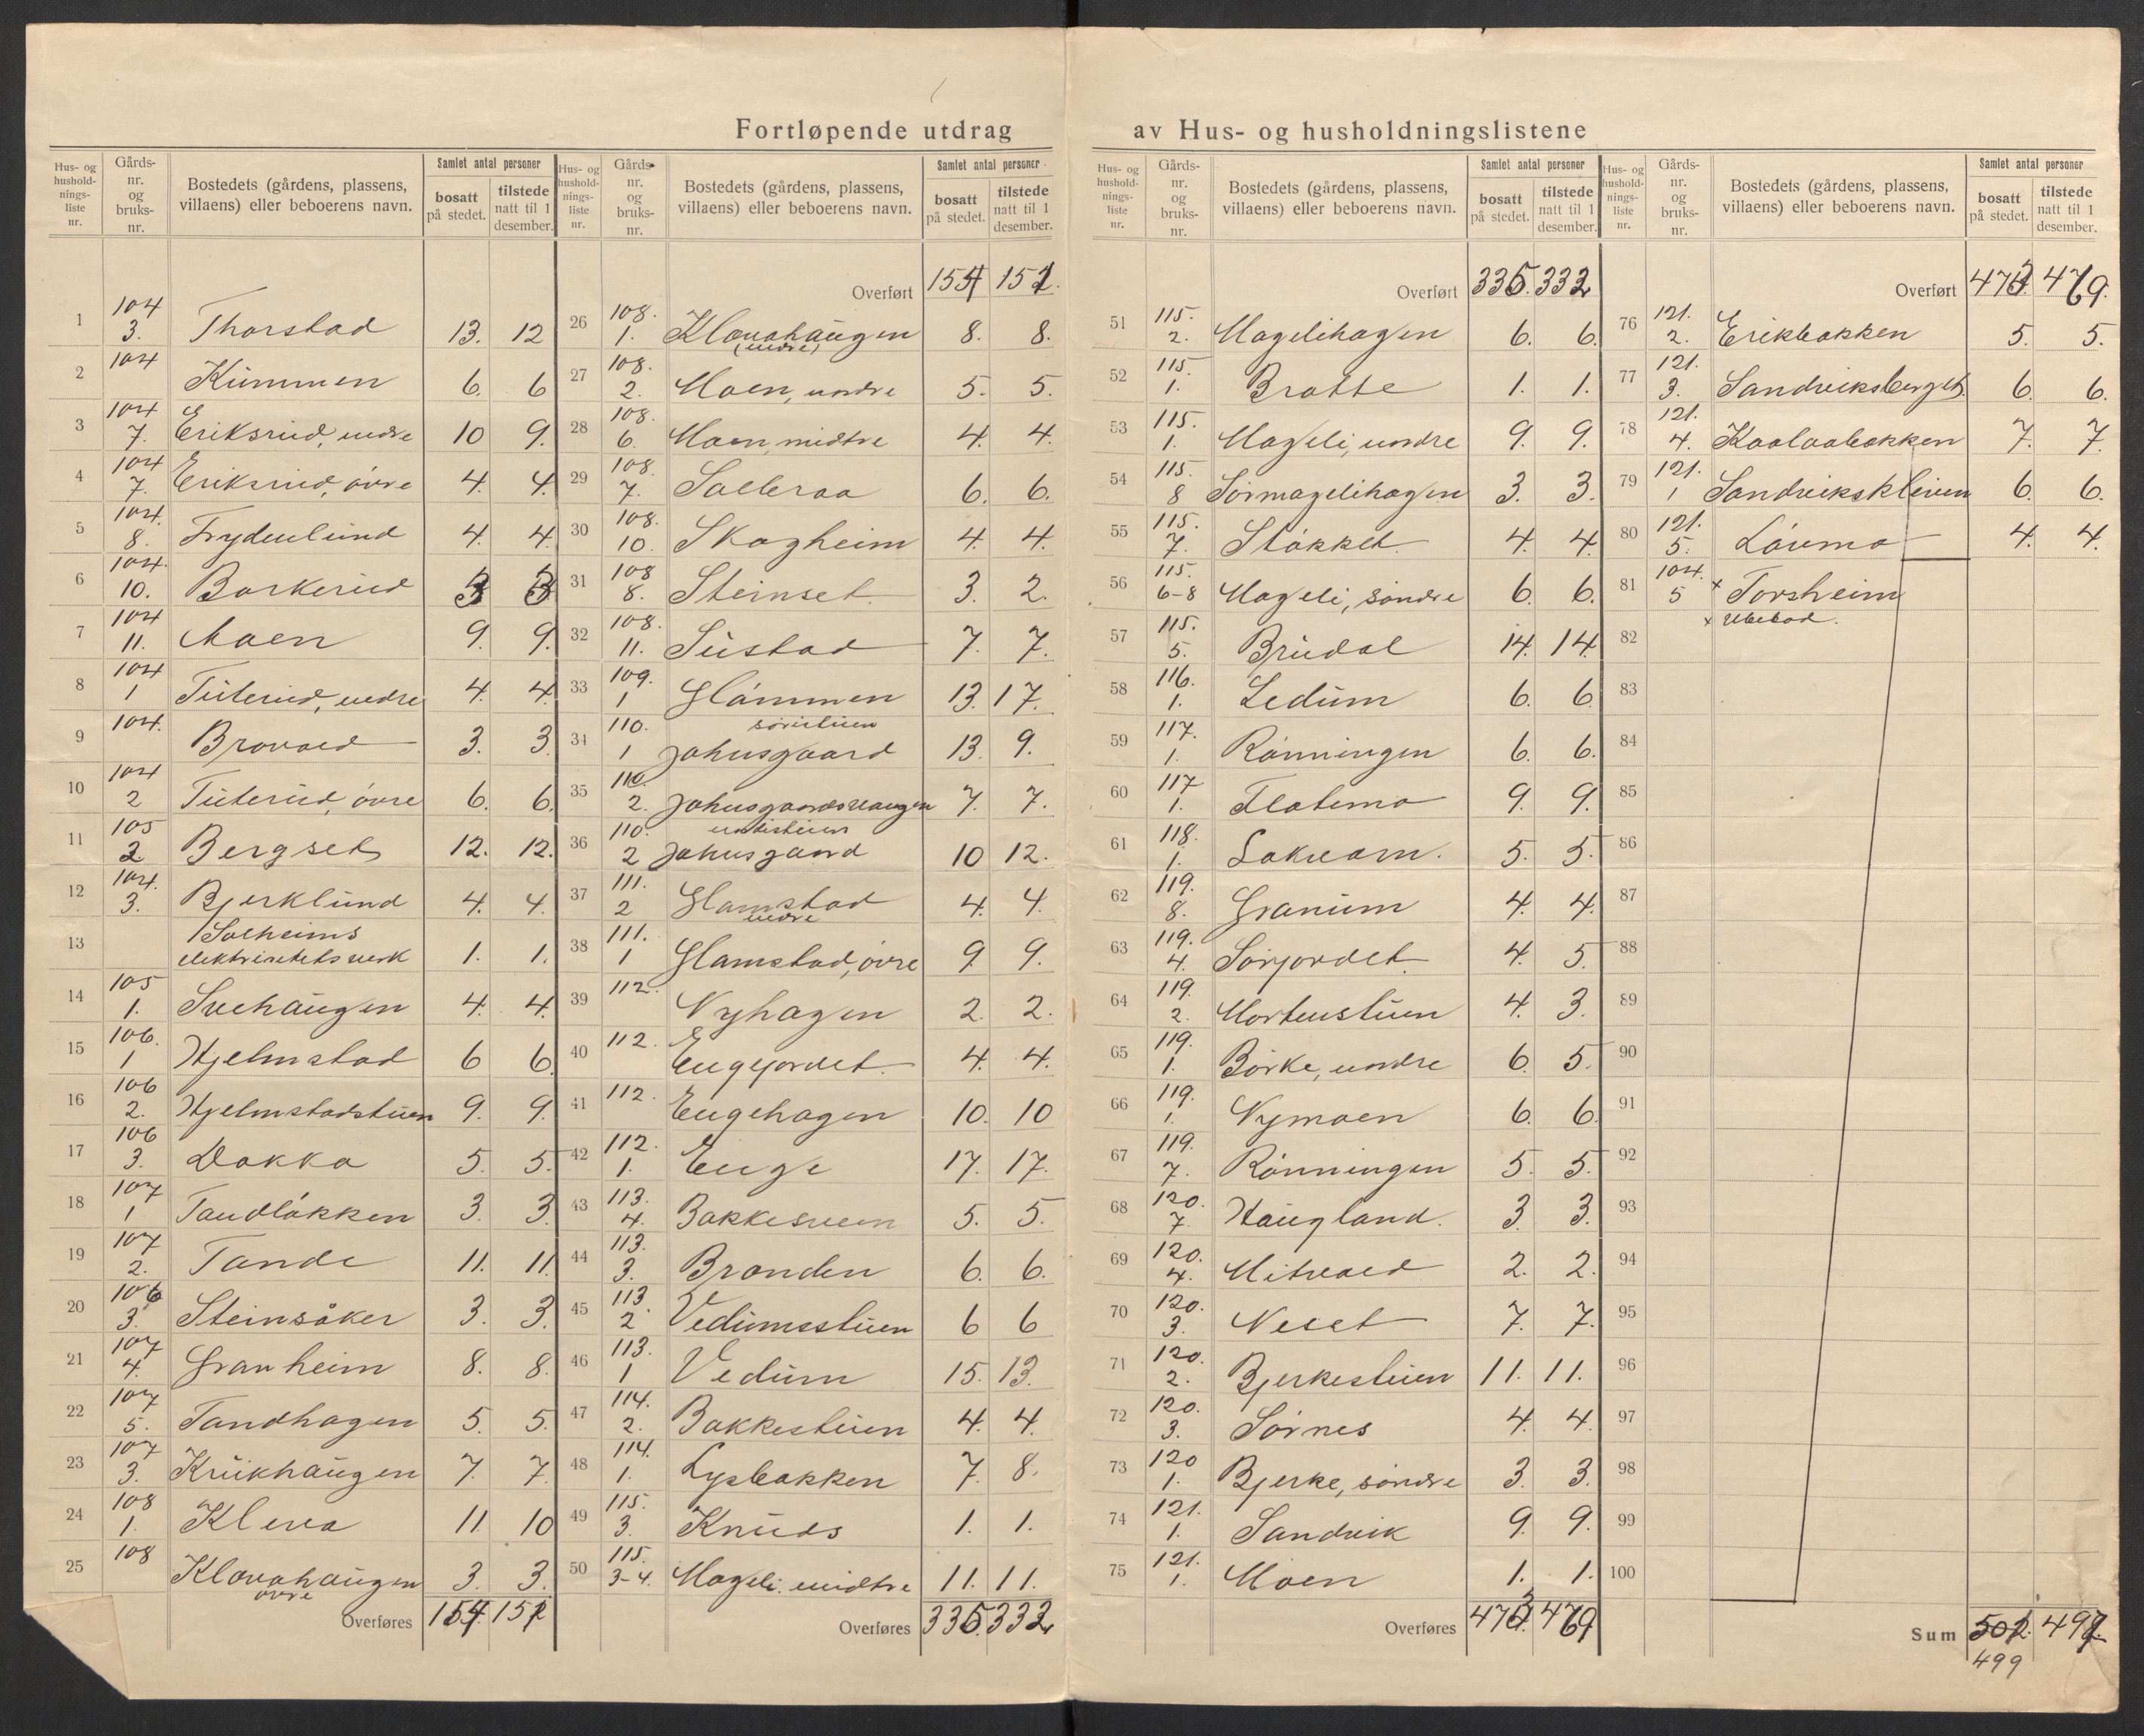 Fortløpende utdrag av Hus- og husholdningslistene
Hus- og hushold-nings-liste nr. Gårds-nr. og bruks-nr. Bostedets (gårdens, plassens, villaens) eller beboerens navn. Samlet antal personer bosatt på stedet. tilstede natt til 1 desember.
1 104 3. Thorstad 13. 12
2 104 Kummen 6. 6
3 104 7. Eriksrud, nedre 10 9.
4 104 7. Eriksrud, øvre 4. 4.
5 104. 8. Frydenlund 4. 4.
6 104. 10. Barkerud
7 104 11. Moen 9. 9.
8 104 1 Tuterud, nedre 4. 4.
9 104. Brovold 3. 3.
10 104 2 Tuterud, øvre 6. 6.
11 105 2 Bergset 12. 12.
12 104. 3. Bjerklund 4. 4.
13 Solheims elektrisitetsverk 1. 1.
14 105 1. Svehaugen 4. 4.
15 106. 1 Hjelmstad 6 6.
16 106 2. Hjelmstadstuen 9. 9.
17 106 3. Dokka 5. 5.
18 107 1 Tandløkken 3. 3.
19 107 2. Tande 11. 11.
20 106 3. Steinsåker 3. 3.
21 107 4. Granheim 8. 8.
22 107 5. Tandhagen 5. 5.
23 107 3. Krukhaugen 7. 7.
24 108 1. Kleva 11 10
25 108 Klovahaugen øvre 3. 3.
Overføres 154. 151
Hus- og hushold-nings-liste nr. Gårds-nr. og bruks-nr. Bostedets (gårdens, plassens, villaens) eller beboerens navn. Samlet antal personer bosatt på stedet. tilstede natt til 1 desember.
Overført 154 151.
26 108. 1. Klovahaugen (nedre) 8. 8.
27 108. 2. Moen, nordre 5. 5.
28 108. 6. Moen, midtre 4. 4.
29 108. 7. Solleraa 6. 6.
30 108. 10. Skogheim 4. 4.
31 108 8. Steinset. 3. 2.
32 108. 11. Sustad 7. 7.
33 109. 1 Glømmen 13. 17.
34 110. 1 Johnsgaard søristuen 13. 9.
35 110. 2. Johnsgaardshaugen 7. 7.
36 110. 2 Johnsgaard nordistuen 10 12.
37 111. 2 Glamstad nedre 4. 4.
38 111. 1 Glamstad, øvre 9. 9.
39 112. Nyhagen 2. 2.
40 112. Engejordet. 4. 4.
41 112. Engehagen 10. 10
42 112. 1. Enge 17. 17.
43 113. 4. Bakkesveen 5. 5.
44 113. 3. Branden 6. 6.
45 113. 2 Vedumsstuen 6 6
46 113. 1 Vedum 15. 13.
47 114. 2. Bakkestuen 4. 4.
48 114. 1. Lysbakken 7. 8.
49 115. 3. Knuds 1. 1.
50 115. 3-4. Mageli midtre 11. 11.
Overføres 335. 332
Hus- og hushold-nings-liste nr. Gårds-nr. og bruks-nr. Bostedets (gårdens, plassens, villaens) eller beboerens navn. Samlet antal personer bosatt på stedet. tilstede natt til 1 desember.
Overført 335. 332
51 115. 2. Magelihagen 6. 6.
52 115. 1. Bratte 1. 1.
53 115. 1. Mageli, nordre 9. 9.
54 115. 8 Sørmagelihagen 3. 3.
55 115. 7. Støkket. 4. 4.
56 115. 6-8 Mageli, søndre 6. 6.
57 115. 5. Brudal 14. 14.
58 116. 1. Ledum 6. 6.
59 117. 1. Rønningen 6. 6.
60 117 1. Flatemo 9. 9.
61 118. 1. Lakvam. 5. 5.
62 119. 8. Granum 4. 4.
63 119. 4. Sørjordet. 4. 5.
64 119. 2. Mortenstuen 4. 3.
65 119. 1. Børke, nordre 6. 5.
66 119. 1. Nymoen 6. 6.
67 119. 7. Rønningen 5. 5.
68 120. 7. Haugland. 3. 3.
69 120. 4. Mitvold 2. 2.
70 120. 3. Neset 7. 7.
71 120. 2. Bjerkestuen 11. 11.
72 120. 3. Sørnes 4. 4.
73 120 1. Bjerke, søndre 3. 3.
74 121. 1. Sandvik 9. 9.
75 121. 1. Moen 1. 1.
Overføres 473. 469
Hus- og hushold-nings-liste nr. Gårds-nr. og bruks-nr. Bostedets (gårdens, plassens, villaens) eller beboerens navn. Samlet antal personer bosatt på stedet. tilstede natt til 1 desember.
Overført 473. 469.
76 121. 2. Erikbakken 5. 5.
77 121. 3. Sandviksberget. 6. 6.
78 121. 4. Kaalaabakken 7. 7.
79 121. 1 Sandvikskleiven 6. 6.
80 121. 5. Løvmo 4. 4.
81 104. 5 x Torsheim
x ubebod.
82
83
84
85
86
87
88
89
90
91
92
93
94
95
96
97
98
99
100
Sum 501. 497
499